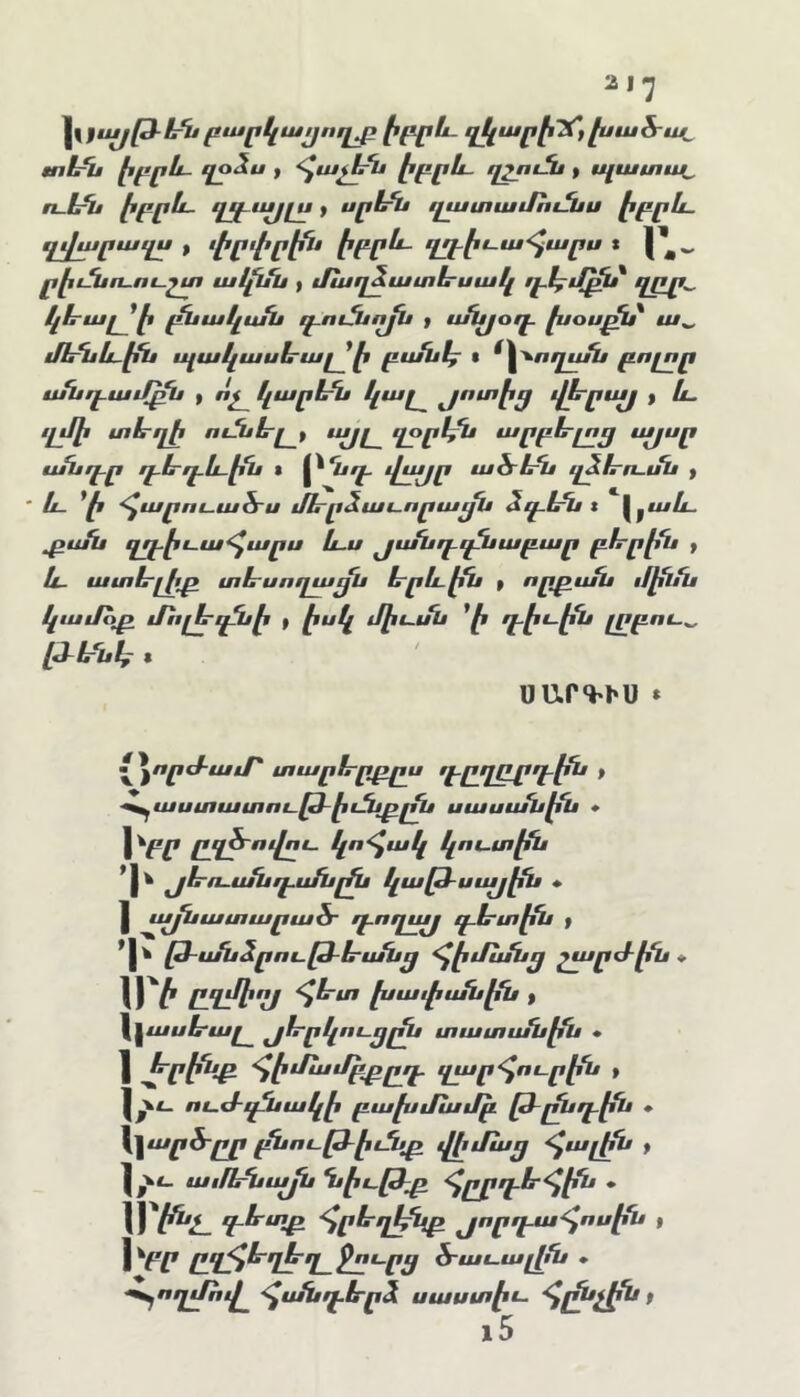 217
Խայթեն բարկացողք իբրև զկարիճ, խածա֊
տեն իբրև զօձս, հաչեն իբրև զշուն, պատա֊
ռեն իբրև զգայլս, սրեն զատամունս իբրև
զվարազս, փրփրին իբրև զդիւահարս։ Ա֊
րիւնռուշտ ակնն, մաղձատեսակ դէմքն՝ զըր֊
կեալ ՚ի բնական գունոյն, անյօդ խօսքն՝ ա֊
մենևին պակասեալ ՚ի բանէ։ Դողան բոլոր
անդամքն, ոչ կարեն կալ յոտից վերայ, և
զմի տեղի ունել, այլ զօրէն արբելոց այսր
անդր դեդևին։ Ընդ վայր ածեն զձեռսն,
և ՚ի հարուածս մերձաւորացն ձգեն։ Նաև
քան զդիւահարս ևս յանդգնաբար բերին,
և ատելիք տեսողացն երևին, որքան մինն
կամօք մոլեգնի, իսկ միւսն ՚ի դիւին լըբու֊
թենէ։
ՍԱՐԳԻՍ։
Յորժամ տարերքըս դըղըրդին,
Հաստատութիւնքըն սասանին.
Իբր ըզծովու կոհակ կուտին
՚Ի յեռանդանըն կաթսային.
Լայնատարած դողայ գետին,
՚Ի թանձրութեանց հիմանց շարժին.
Մի ըզմիոյ հետ խափանին,
Կասեալ յերկուցըն տատանին.
Լերինք հիմամբքըդ զարհուրին,
Եւ ուժգնակի բախմամբ թընդին.
Կարծըր բնութիւնք վիմաց հալին,
Եւ ամենայն նիւթք հըրդեհին.
Մինչ գետք հրեղէնք յորդահոսին,
Իբր ըզհեղեղ ջուրց ծաւալին.
Հողմով հանդերձ սաստիւ հընչին,
15